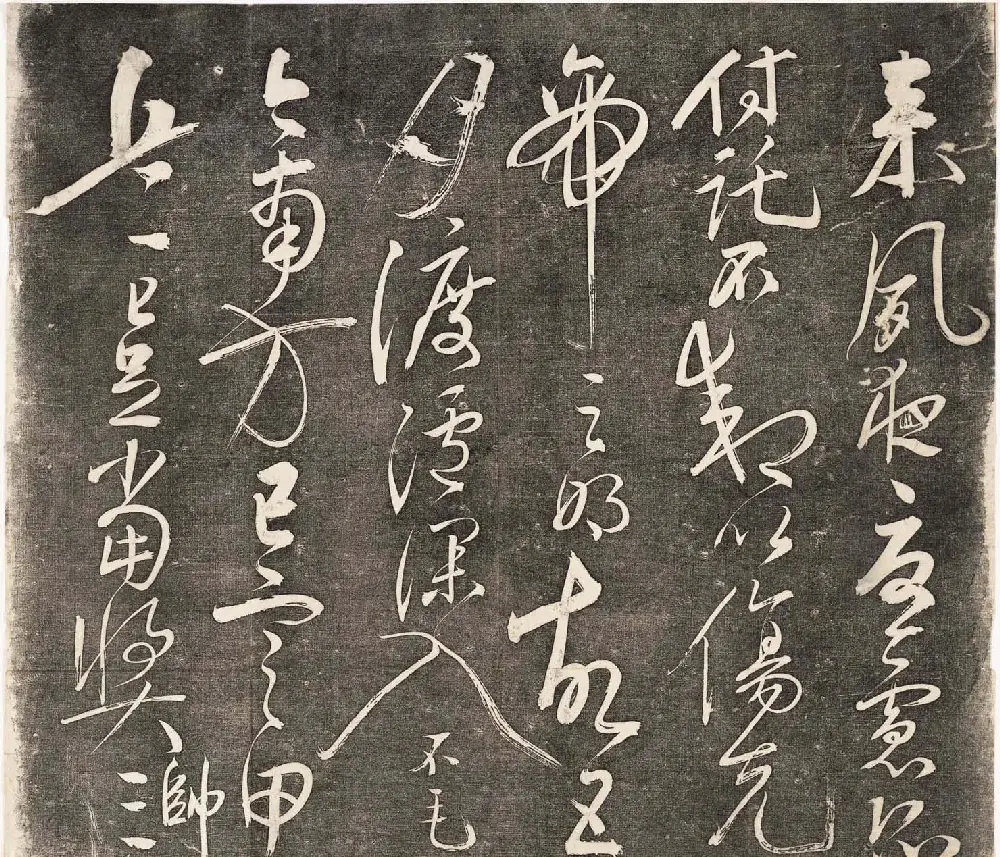 來夙夜憂慮恐
付託不効以傷先
帝之明故五
月渡瀘深入不毛
今南方已定甲
兵已足當獎帥三